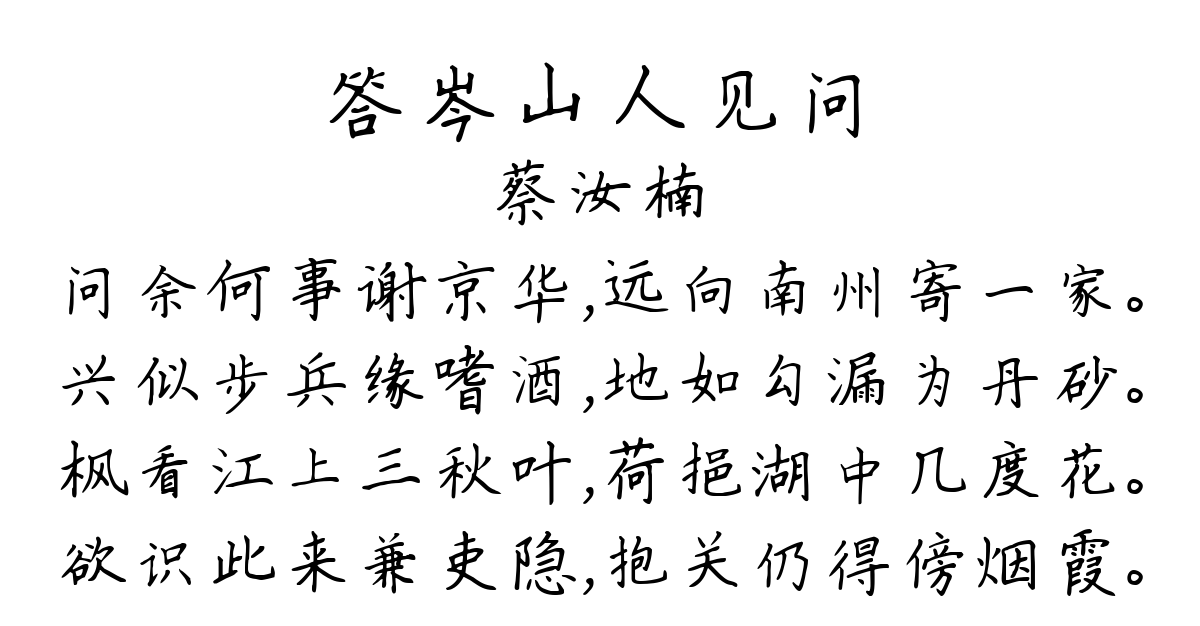 答岑山人见问
蔡汝楠
问余何事谢京华,远向南州寄一家。
兴似步兵缘嗜酒,地如勾漏为丹砂。
枫看江上三秋叶,荷挹湖中几度花。
欲识此来兼吏隐,抱关仍得傍烟霞。